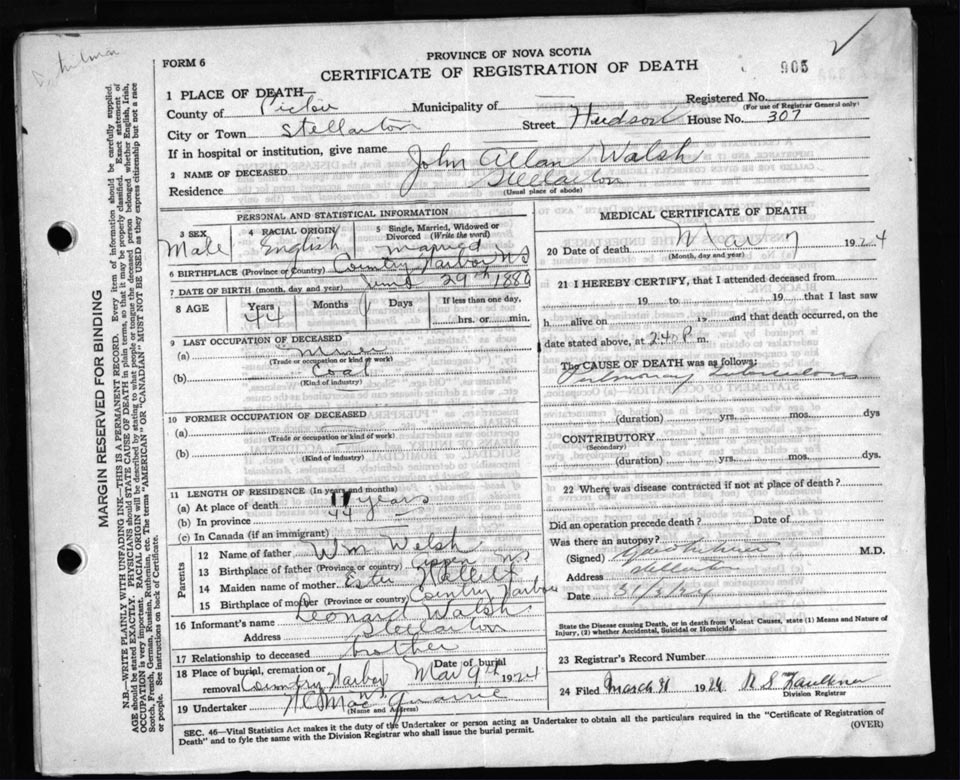 FORM 6
PROVINCE OF NOVA SCOTIA
CERTIFICATE OF REGISTRATION OF DEATH
905
1 PLACE OF DEATH—
Registered No.
(For use of Registrar General only)
County of Pictou Municipality of
City or Town Stellarton Street Hudson House No. 307
If in hospital or institution, give name
2 NAME OF DECEASED John Allan Walsh
Residence Stellarton
(Usual place of abode)
PERSONAL AND STATISTICAL INFORMATION
3 SEX Male
4 RACIAL ORIGIN English
5 Single, Married, Widowed or Divorced (Write the word) married
6 BIRTHPLACE (Province or Country) Country Harbor NS
7 DATE OF BIRTH (month, day and year) 29th 1880
8 AGE Years 44 Months Days If less than one day, hrs. or min.
9 LAST OCCUPATION OF DECEASED
(a) miner
(Trade or occupation or kind of work)
(b) Coal
(Kind of industry)
10 FORMER OCCUPATION OF DECEASED
(a)
(Trade or occupation or kind of work)
(b)
(Kind of industry)
11 LENGTH OF RESIDENCE (In years and months)
(a) At place of death 11 years
(b) In province 44
(c) In Canada (if an immigrant)
Parents
12 Name of father Wm Welsh
13 Birthplace of father (Province or country) NS
14 Maiden name of mother Ester
15 Birthplace of mother (Province or Country) Country Harbor
16 Informant's name Leonard Walsh
Address Stellarton
17 Relationship to deceased brother
18 Place of burial, cremation or removal Country Harbor Date of burial Mar 9th 1924
19 Undertaker
(Name and Address)
MEDICAL CERTIFICATE OF DEATH
20 Date of death Mar 7 1924
(Month, day and year)
21 I HEREBY CERTIFY, that I attended deceased from
19 to 19 that I last saw
h alive on 19 and that death occurred, on
date stated above, at 2:40 P. m.
The CAUSE OF DEATH was as follows:
Pulmonary Tuberculosis
(duration) yrs. mos. dys
CONTRIBUTORY
(Secondary)
(duration) yrs. mos. dys.
22 Where was disease contracted if not at place of death?
Did an operation precede death? Date of
Was there an autopsy?
(Signed) M.D.
Address Stellarton
Date 31/3/24
State the Disease causing Death, or in Death from Violent Causes, state (1) Means and Nature of Injury, (2) whether Accidental, Suicidal or Homicidal.
23 Registrar's Record Number
24 Filed March 31 1924 R S Faulkner
Division Registrar
SEC. 46—Vital Statistics Act makes it the duty of the Undertaker or person acting as Undertaker to obtain all the particulars required in the "Certificate of Registration of
Death" and to fyle the same with the Division Registrar who shall issue the burial permit. (OVER)
MARGIN RESERVED FOR BINDING
N.B—WRITE PLAINLY WITH UNFADING INK—THIS IS A PERMANENT RECORD. Every item of information should be carefully supplied.
AGE should be stated EXACTLY. PHYSICIANS should STATE CAUSE OF DEATH in plain terms, so that it may be properly classified. Exact statement of
OCCUPATION is very important. RACIAL ORIGIN will be described by stating to what people or tongue the deceased person belonged whether English, Irish,
Scotch, French, German, Russian, Ruthenian, etc. The terms "AMERICAN" OR "CANADIAN" MUST NOT BE USED as they express citizenship but not a race
or people. See instructions on back of Certificate.